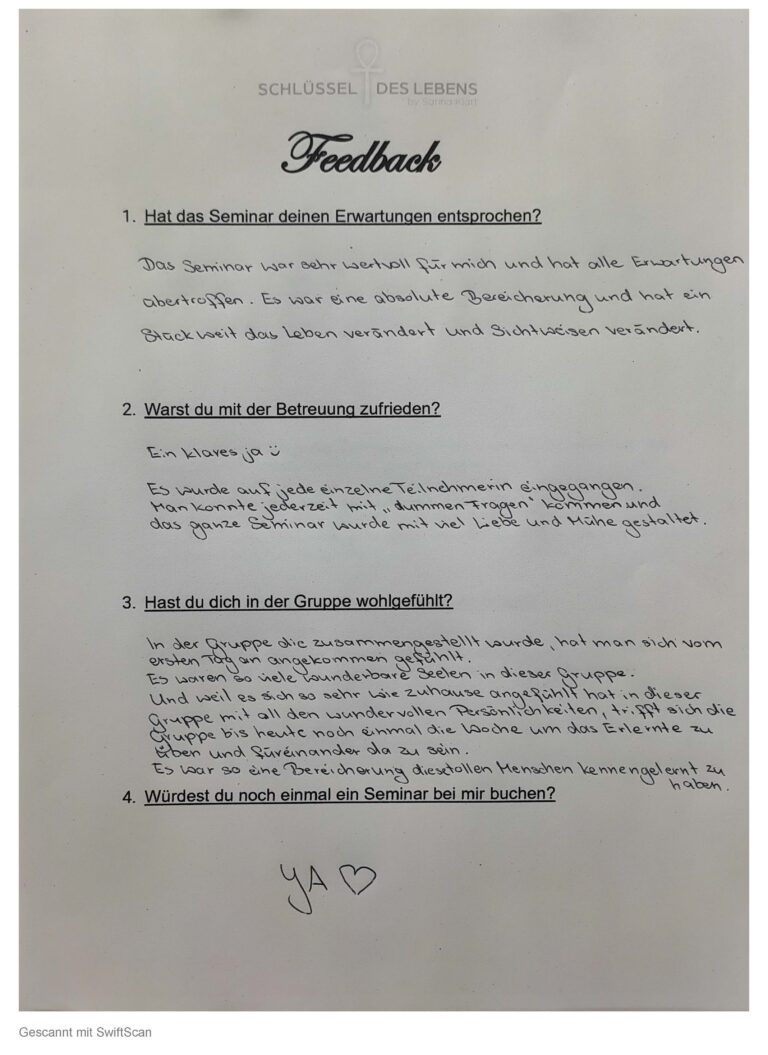 SCHLÜSSEL DES LEBENS
by Sarina Klärt
Feedback
1. Hat das Seminar deinen Erwartungen entsprochen?
Das Seminar war sehr wertvoll für mich und hat alle Erwartungen
übertroffen. Es war eine absolute Bereicherung und hat ein
Stück weit das Leben verändert und Sichtweisen verändert.
2. Warst du mit der Betreuung zufrieden?
Ein klares ja ü
Es wurde auf jede einzelne Teilnehmerin eingegangen.
Man konnte jederzeit mit „dummen Fragen" kommen und
das ganze Seminar wurde mit viel Liebe und Mühe gestaltet.
3. Hast du dich in der Gruppe wohlgefühlt?
In der Gruppe die zusammengestellt wurde, hat man sich vom
ersten Tag an angekommen gefühlt.
Es waren so viele wunderbare Seelen in dieser Gruppe.
Und weil es sich so sehr wie zuhause angefühlt hat in dieser
Gruppe mit all den wundervollen Persönlichkeiten, trifft sich die
Gruppe bis heute noch einmal die Woche um das Erlernte zu
üben und füreinander da zu sein.
Es war so eine Bereicherung diese tollen Menschen kennengelernt zu
haben.
4. Würdest du noch einmal ein Seminar bei mir buchen?
YA ♡
Gescannt mit SwiftScan